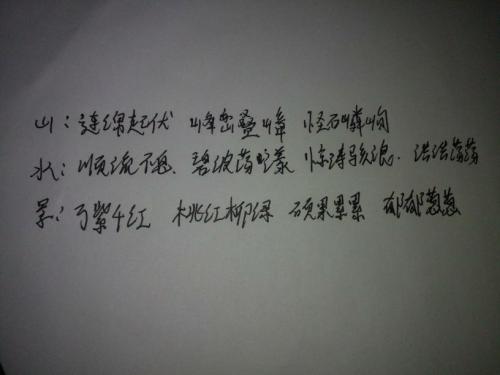 山：连绵起伏 峰峦叠嶂 怪石嶙峋
水：川流不息．碧波荡漾 惊涛骇浪．浩浩荡荡
景：万紫千红 桃红柳绿 硕果累累 郁郁葱葱